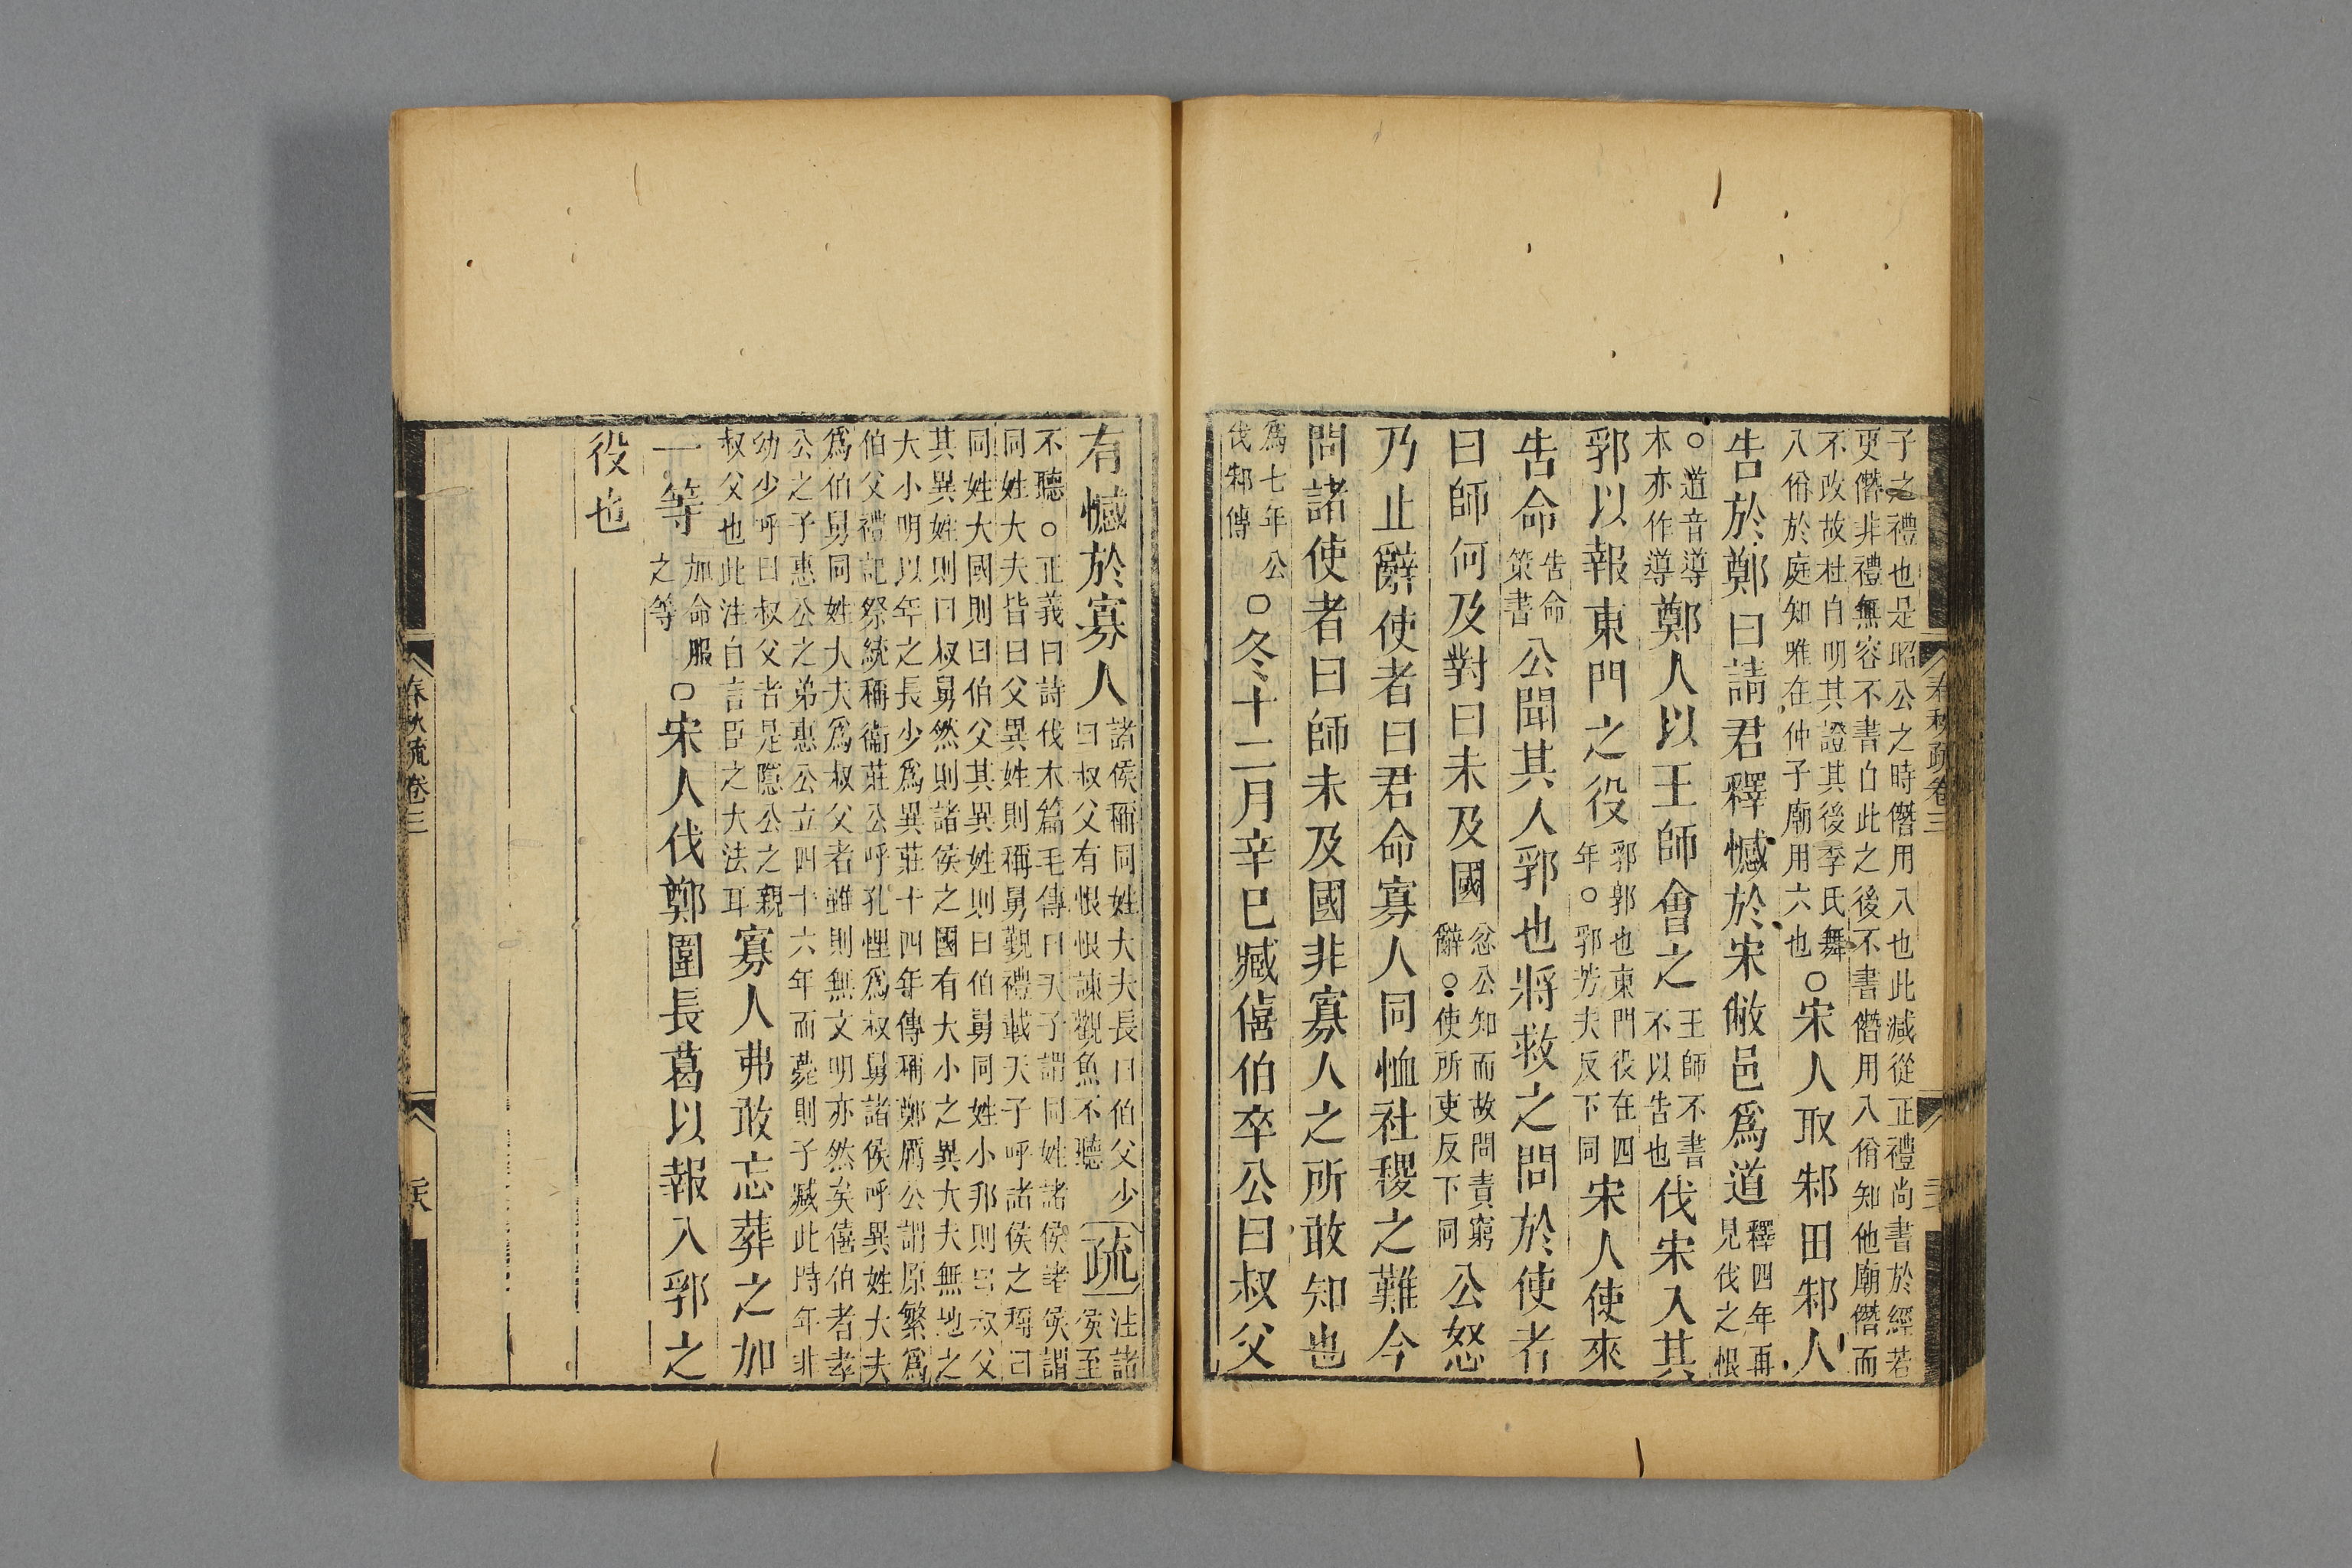 春秋疏卷三
子之禮也是昭公之時僭用八也此減從正禮尚書於經若
更僭非禮無容不書自此之後不書僭用八佾知他廟僭而
不改故杜自明其證其後季氏舞
八佾於庭知唯在仲子廟用六也○宋人取邾田邾人
告於鄭曰請君釋憾於宋敝邑爲道釋四年再見伐之恨
○道音導本亦作導鄭人以王師會之王師不書不以告也伐宋入其
郛以報東門之役郛郭也東門役在四年○郛芳夫反下同宋人使來
告命告命策書公聞其入郛也將救之問於使者
曰師何及對曰未及國忿公知而故問責窮辭○使所吏反下同公怒
乃止辭使者曰君命寡人同恤社稷之難今
問諸使者曰師未及國非寡人之所敢知也
爲七年公伐邾傳○冬十二月辛巳臧僖伯卒公曰叔父
有憾於寡人諸侯稱同姓大夫長曰伯父少曰叔父有恨恨諫觀魚不聽疏注諸侯至
不聽○正義曰詩伐木篇毛傳曰天子謂同姓諸侯諸侯謂
同姓大夫皆曰父異姓則稱舅覲禮載天子呼諸侯之稱曰
同姓大國則曰伯父其異姓則曰伯舅同姓小邦則曰叔父
其異姓則曰叔舅然則諸侯之國有大小之異大夫無地之
大小明以年之長少爲異莊十四年傳稱鄭厲公謂原繁爲
伯父禮記祭統稱衞莊公呼孔悝爲叔舅諸侯呼異姓大夫
爲伯舅同姓大夫爲叔父者雖則無文明亦然矣僖伯者孝
公之子惠公之弟惠公立四十六年而薨則子臧此時年非
幼少呼曰叔父者是隱公之親
叔父也此注自言臣之大法耳寡人弗敢忘葬之加
一等加命服之等○宋人伐鄭圍長葛以報入郛之
役也
春秋疏卷三